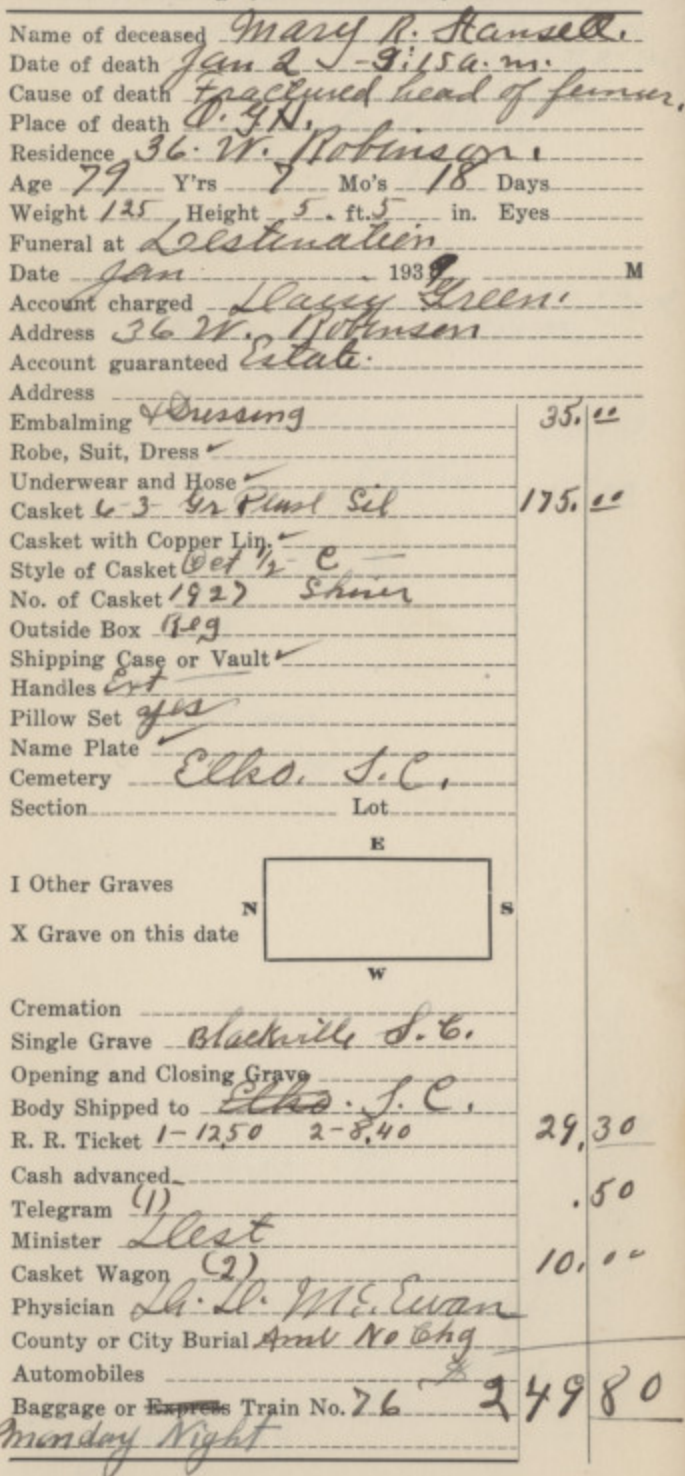 Name of deceased Mary R. Hansell.
Date of death Jan 2 - 9:15 a.m.
Cause of death Fractured head of femur.
Place of death O.G.H.
Residence 36. W. Robinson.
Age 79 Y'rs 7 Mo's 18 Days
Weight 125 Height 5. ft. 5 in. Eyes
Funeral at Destination
Date Jan 1939 M
Account charged Daisy Green.
Address 36 W. Robinson
Account guaranteed Estate.
Address
Embalming & Dressing 35.00
Robe, Suit, Dress ✓
Underwear and Hose ✓
Casket 6-3 Gr Plush Sil 175.00
Casket with Copper Lin. ✓
Style of Casket Oct 1/2 C
No. of Casket 1927
Outside Box Reg
Shipping Case or Vault ✓
Handles Ext
Pillow Set yes
Name Plate ✓
Cemetery Elko. S.C.
Section Lot
E
I Other Graves
N S
X Grave on this date
W
Cremation
Single Grave Blackville S.C.
Opening and Closing Grave
Body Shipped to Elko. S.C.
R. R. Ticket 1-12.50 2-8.40 29.30
Cash advanced
Telegram (1) .50
Minister Dest
Casket Wagon (2) 10.00
Physician McEwan
County or City Burial Aml No Chg
Automobiles
Baggage or Express Train No. 76 249 80
Monday Night